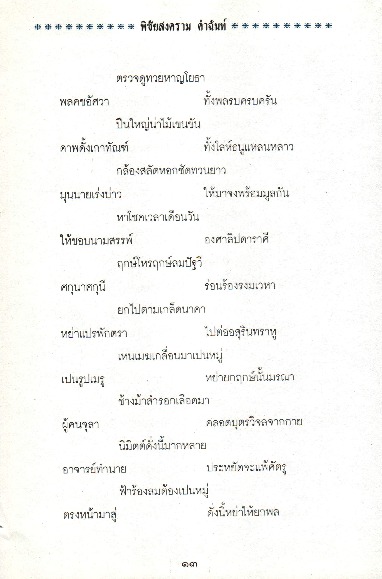 พิชัยสงคราม คำฉันท์
ตรวจดูทวยหาญโยธา
พลคชอัศวา ทั้งพลรบครบครัน
ปืนใหญ่น่าไม้เขนขัน
ดาพดั้งเกาทัณฑ์ ทั้งโล่ห์อนูแหลนหลาว
กล้องสลัดหอกซัดทวนยาว
มุนนายเร่งบ่าว ให้มาจงพร้อมมูลกัน
หาโชคเวลาเดือนวัน
ให้ชอบนามสรรพ์ องศาลิปดาราศี
ฤกษ์โหรฤกษ์ลมปัฐวี
ศกุนาศกุนี ร่อนร้องรงมเวหา
ยกไปตามเกล็ดนาคา
หย่าแปรพักตรา ไปต่ออสุรินทราหู
เหนเมฆเกลื่อนมาเปนหมู่
เปนรูปเมรุ หย่ายกฤกษ์นั้นมรณา
ช้างม้าสำรอกเลือดมา
ผู้คนจุลา คลอดบุตรวิจลจากกาย
นิมิตต์ดั่งนี้มากหลาย
อาจารย์ทำนาย ประหยัดจะแพ้ศัตรู
ฟ้าร้องลมต้องเปนหมู่
ตรงหน้ามาสู่ ดั่งนี้หย่าให้ยาพล
๑๓